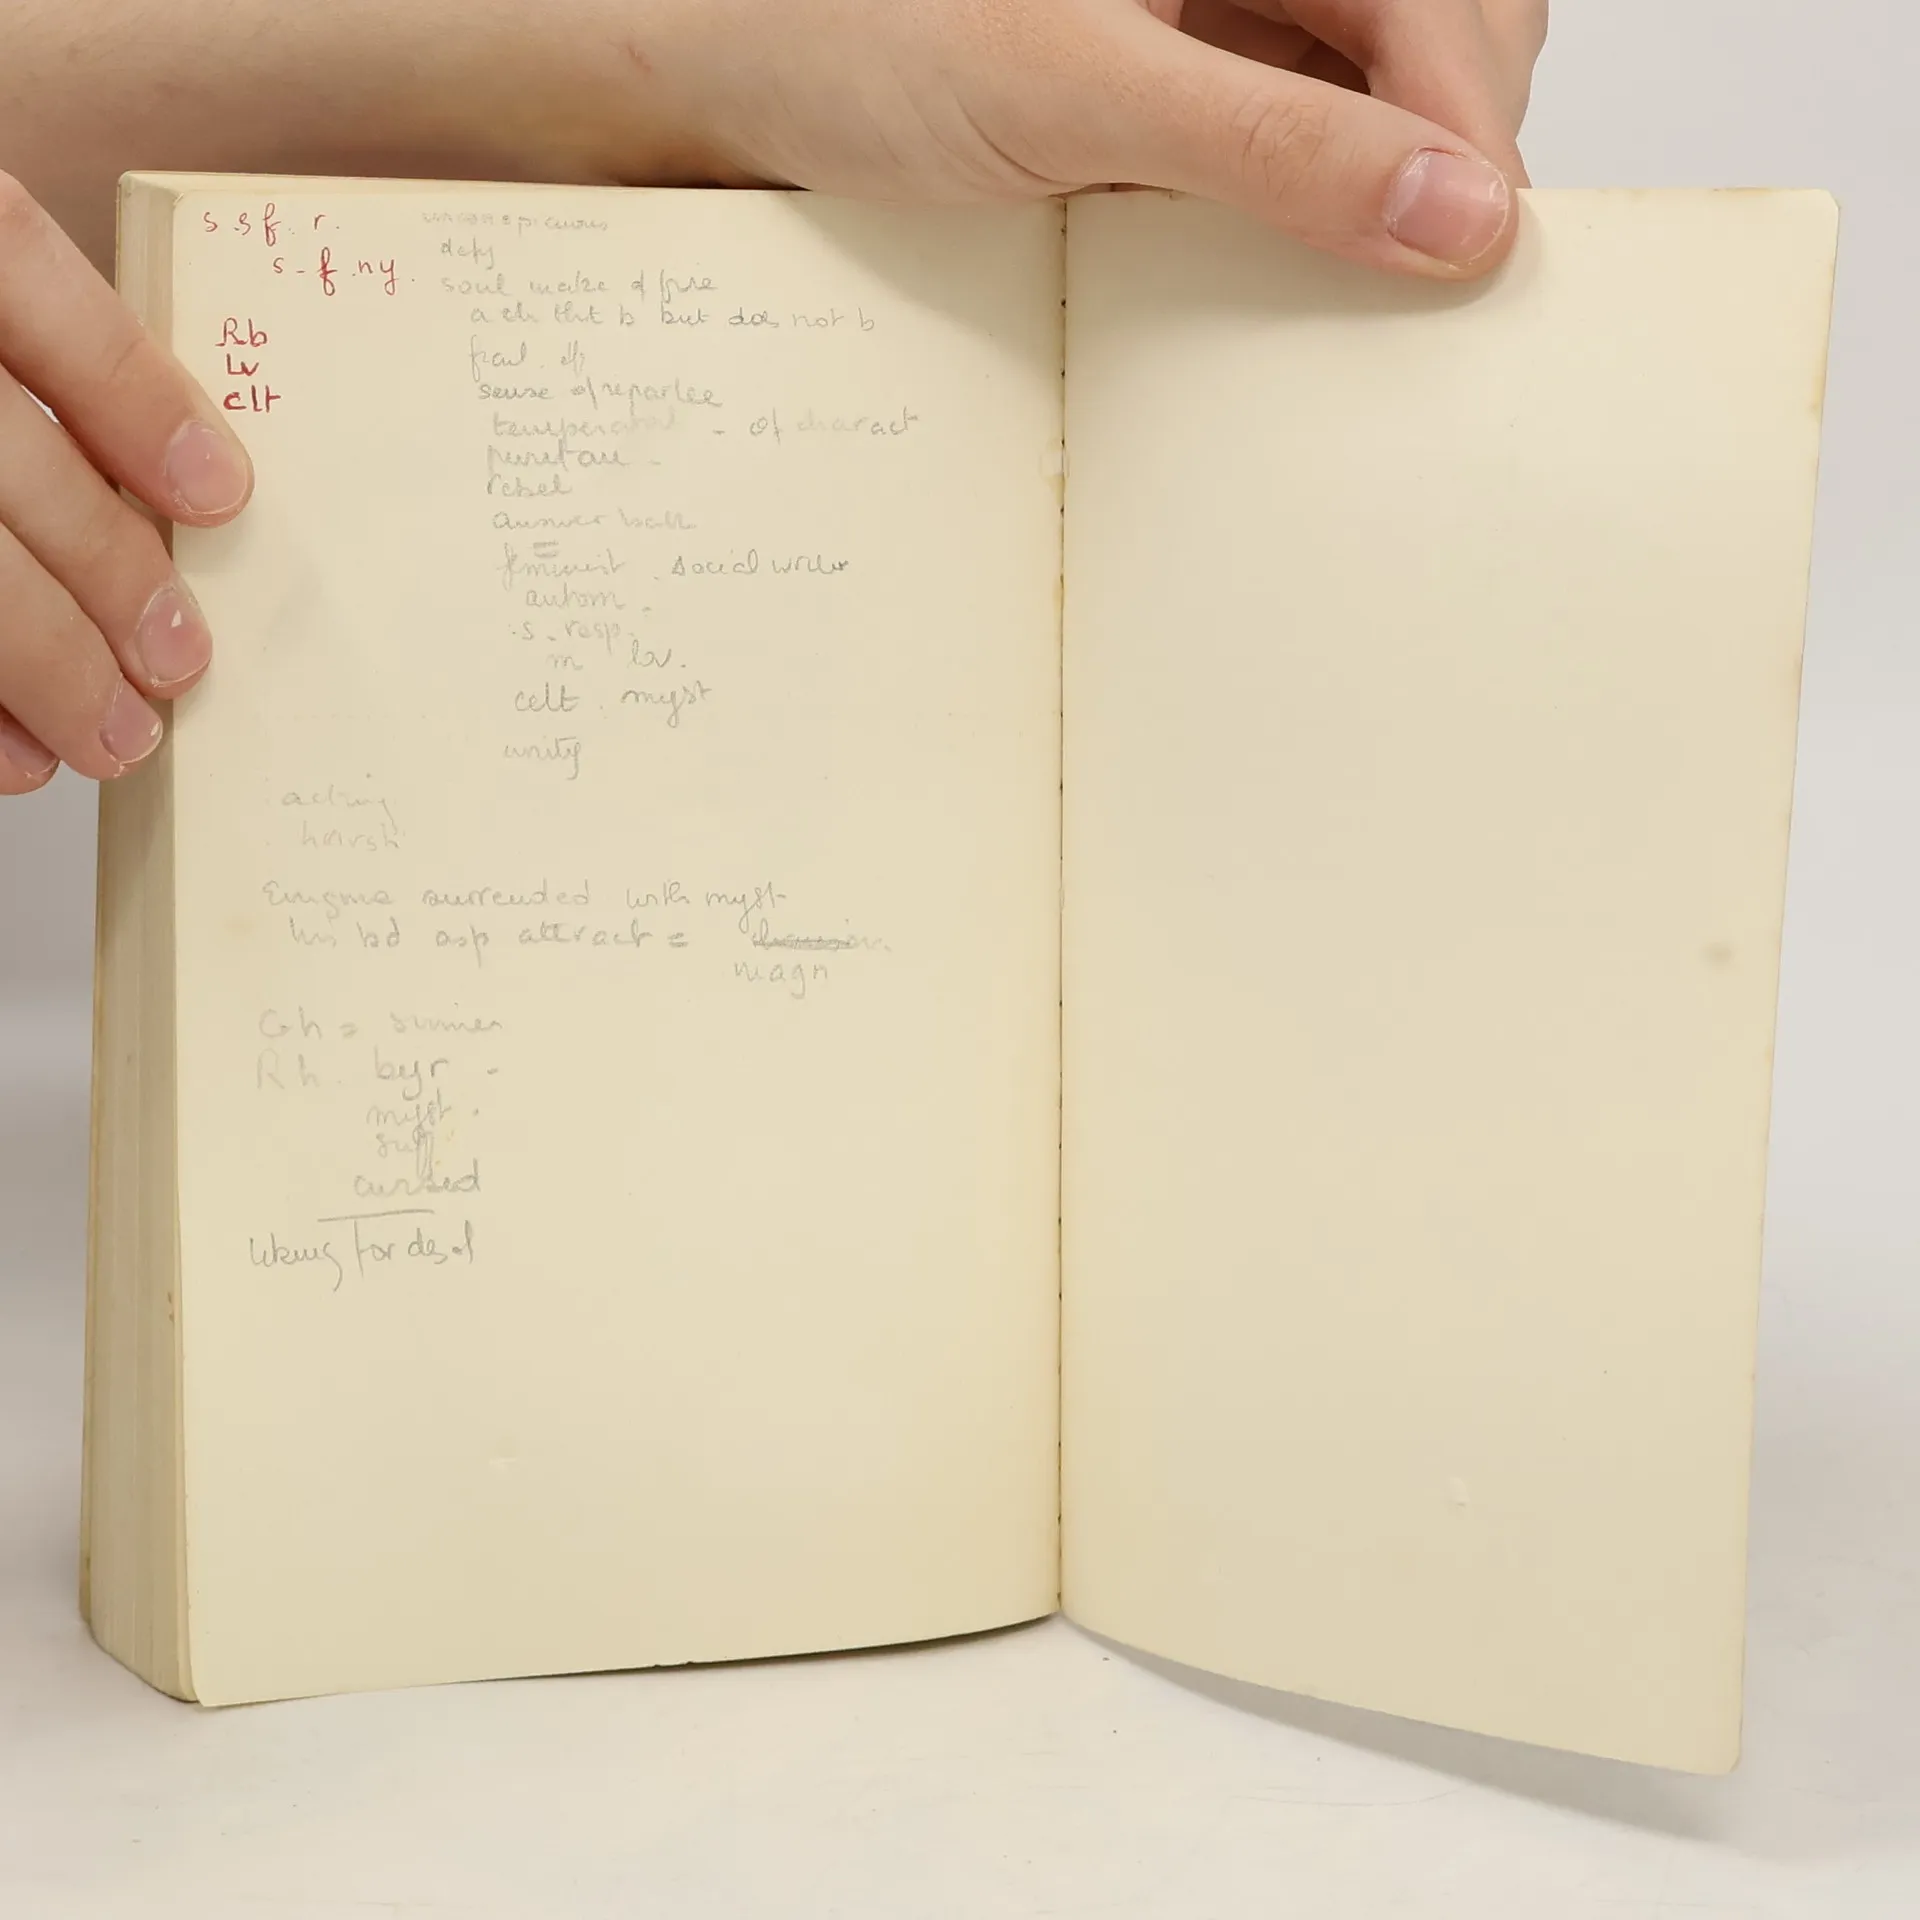 s.sf. r.
s-f.ny.
Rb
Lv
clt
defy
soul make of fire
a ch tht b but does not b
sense of repartee
- of charact
puritan -
rebel
answer back
feminist . social writer
autom.
s. resp.
m lov.
celt . myst
unity
acting
harsh
Enigma surrended with myst
his bd asp attract =
magn
Gh = sinner
Rh. byr -
myst.
suff
cursed
liking for des of